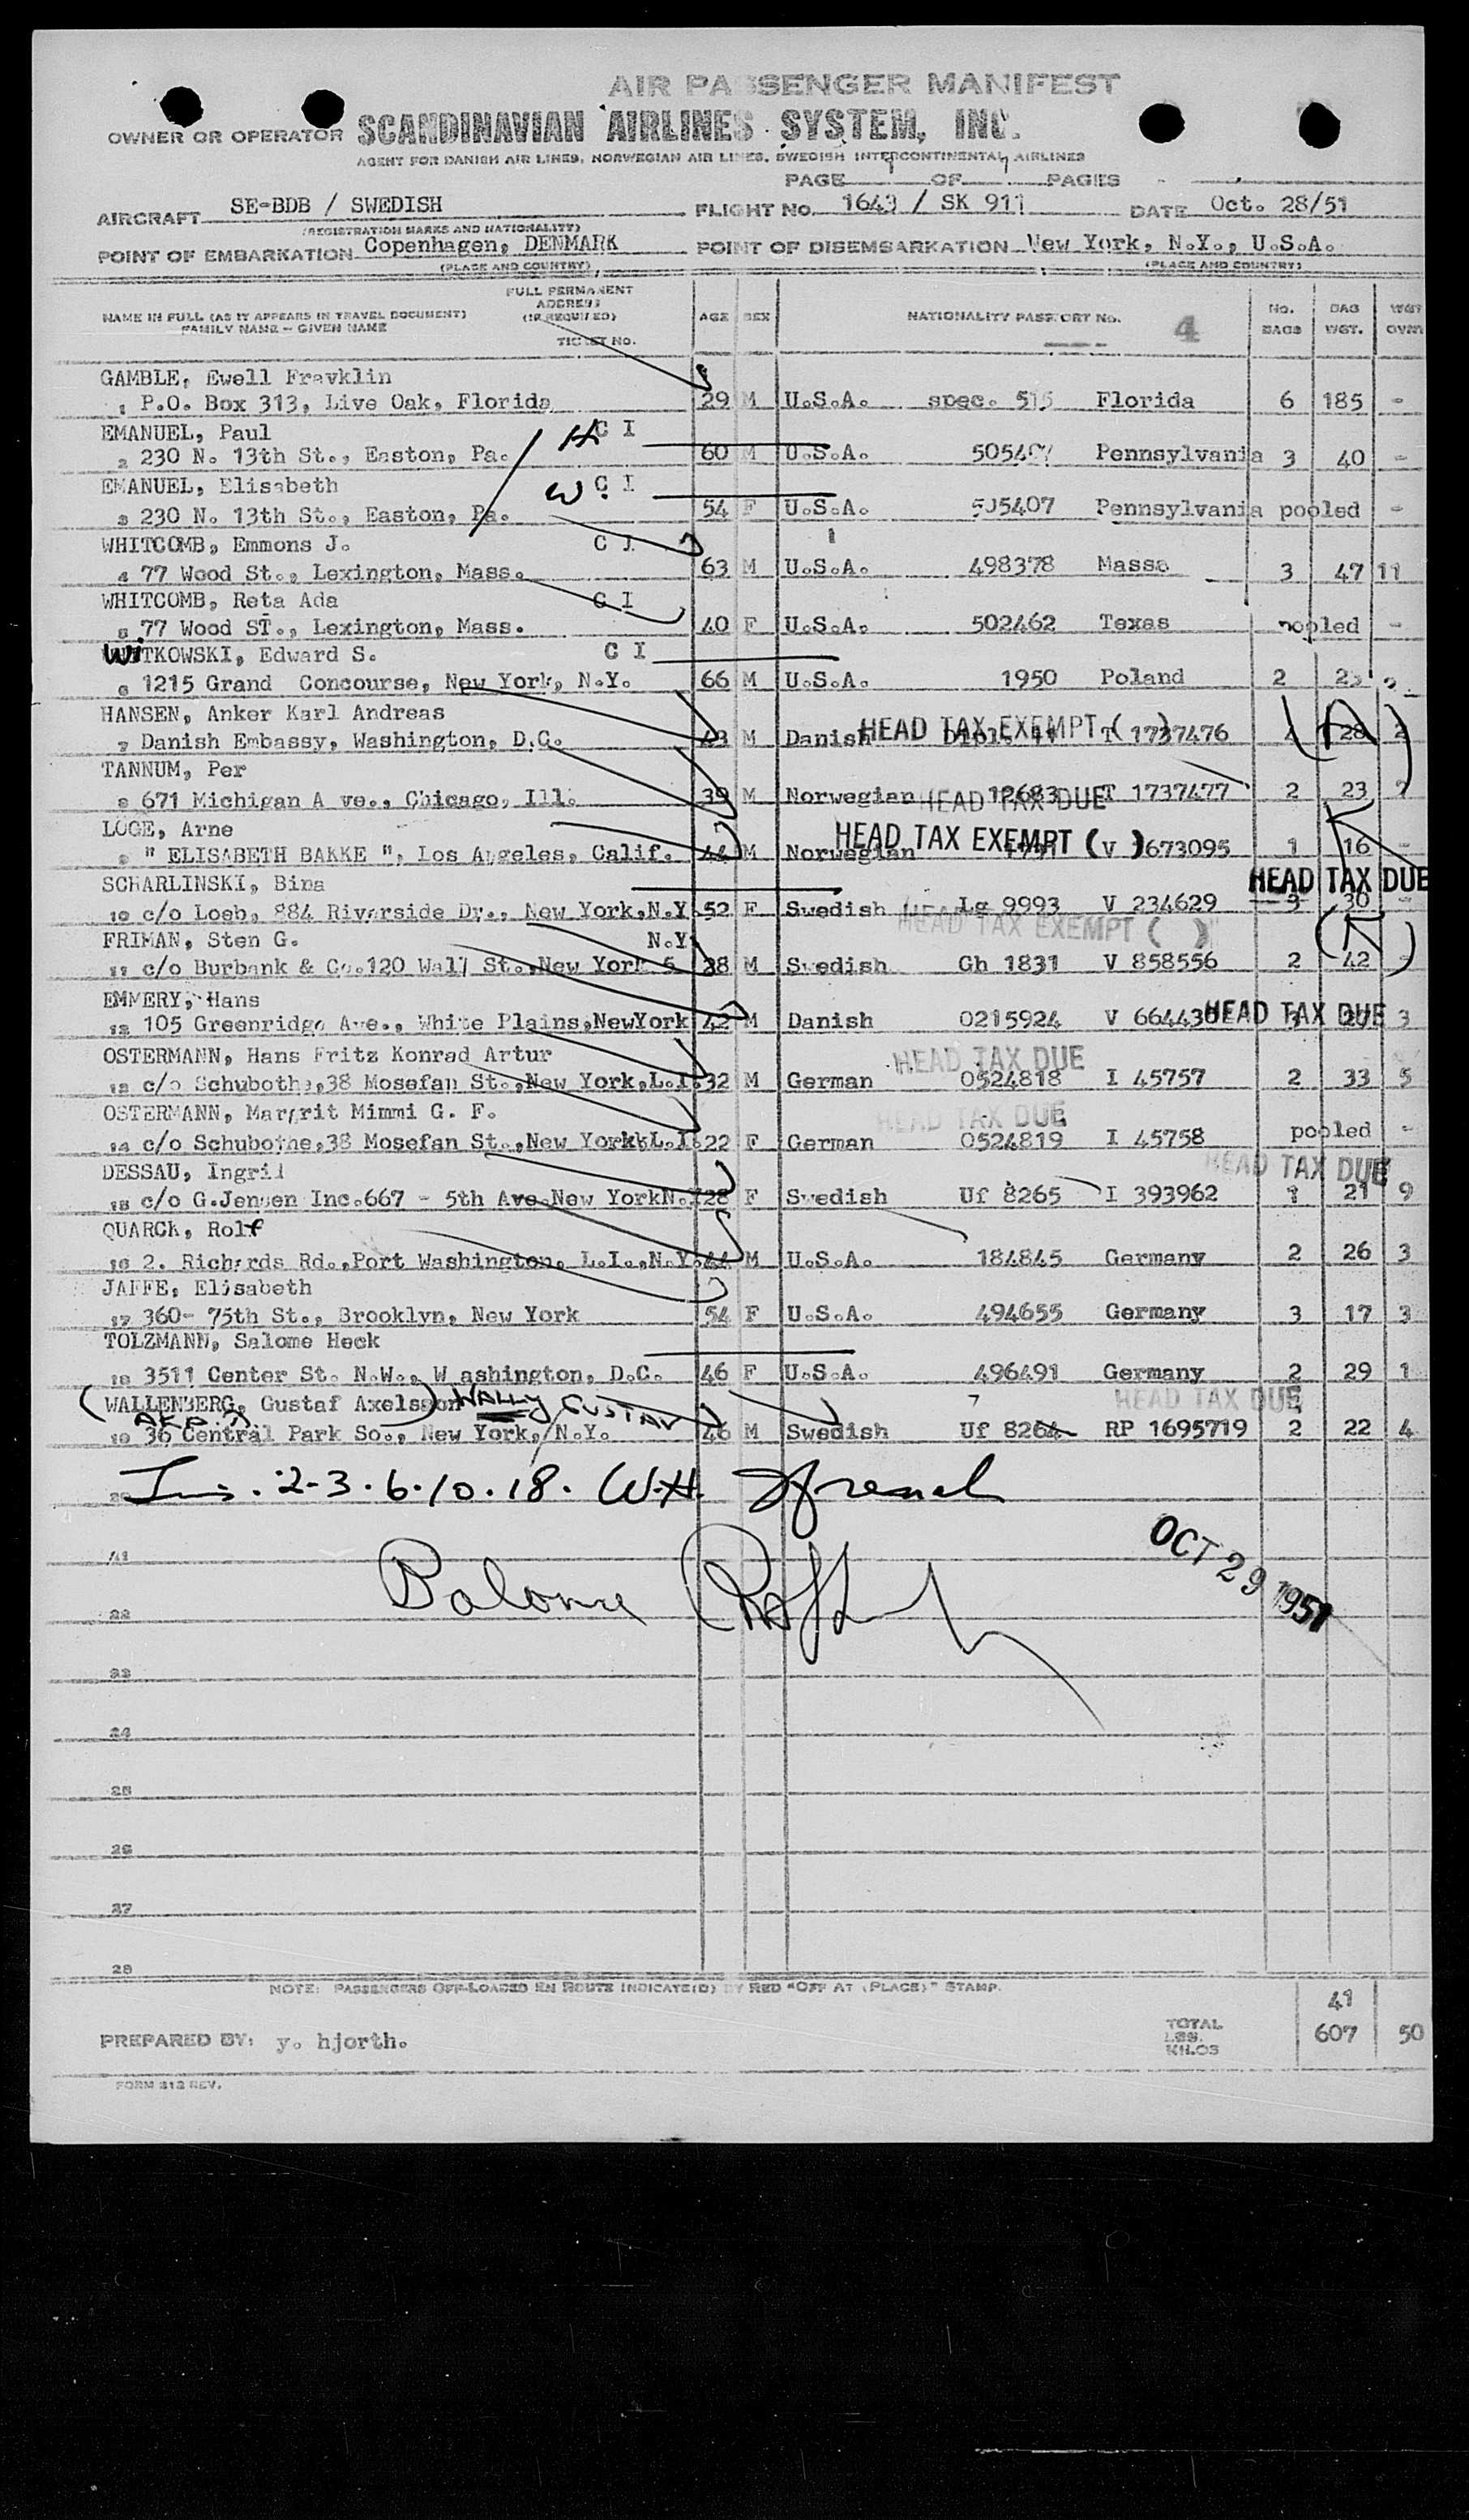 AIR PASSENGER MANIFEST
OWNER OR OPERATOR SCANDINAVIAN AIRLINES SYSTEM, INC.
AGENT FOR DANISH AIR LINES, NORWEGIAN AIR LINES, SWEDISH INTERCONTINENTAL AIRLINES
PAGE 1 OF 1 PAGES
AIRCRAFT SE-BDB / SWEDISH FLIGHT No. 1643 / SK 911 DATE Oct. 28/51
(REGISTRATION MARKS AND NATIONALITY)
POINT OF EMBARKATION Copenhagen, DENMARK POINT OF DISEMBARKATION New York, N.Y., U.S.A.
(PLACE AND COUNTRY) (PLACE AND COUNTRY)
FULL PERMANENT
ADDRESS
NAME IN FULL (AS IT APPEARS IN TRAVEL DOCUMENT) (IF REQUIRED) AGE SEX NATIONALITY PASSPORT No. 4 No. BAGS BAG WGT.
FAMILY NAME - GIVEN NAME
TICKET NO.
GAMBLE, Ewell Fravklin
1 P.O. Box 313, Live Oak, Florida 29 M U.S.A. spec. 515 Florida 6 185 -
EMANUEL, Paul H C I
2 230 N. 13th St., Easton, Pa. 60 M U.S.A. 505407 Pennsylvania 3 40 -
EMANUEL, Elisabeth W. C I
3 230 N. 13th St., Easton, Pa. 54 F U.S.A. 505407 Pennsylvania pooled -
WHITCOMB, Emmons J. C I
4 77 Wood St., Lexington, Mass. 63 M U.S.A. 498378 Mass. 3 47 11
WHITCOMB, Reta Ada C I
5 77 Wood ST., Lexington, Mass. 40 F U.S.A. 502462 Texas pooled -
WiTKOWSKI, Edward S. C I
6 1215 Grand Concourse, New York, N.Y. 66 M U.S.A. 1950 Poland 2 23
HANSEN, Anker Karl Andreas
7 Danish Embassy, Washington, D.C. 43 M Danish HEAD TAX EXEMPT ( ) T 1737476 (A) 28 2
TANNUM, Per
8 671 Michigan A ve., Chicago, Ill. 39 M Norwegian 12683 HEAD TAX DUE T 1737477 2 23
LOGE, Arne
9 " ELISABETH BAKKE ", Los Angeles, Calif. 44 M Norwegian HEAD TAX EXEMPT ( ) V 673095 1 16 -
SCHARLINSKI, Bina HEAD TAX DUE
10 c/o Loeb, 884 Riverside Dr., New York,N.Y. 52 F Swedish Lg 9993 V 234629 3 30 -
HEAD TAX EXEMPT ( )
FRIMAN, Sten G. N.Y.
11 c/o Burbank & Co.120 Wall St.,New York 5 38 M Swedish Gh 1831 V 858556 2 42
EMMERY, Hans
12 105 Greenridge Ave., White Plains,NewYork 42 M Danish 0215924 V 66443 HEAD TAX DUE 3
OSTERMANN, Hans Fritz Konrad Artur HEAD TAX DUE
13 c/o Schubothe,38 Mosefan St.,New York,L.I. 32 M German 0524818 I 45757 2 33 5
OSTERMANN, Margrit Mimmi G. F. HEAD TAX DUE
14 c/o Schubothe,38 Mosefan St.,New York,L.I. 22 F German 0524819 I 45758 pooled -
DESSAU, Ingrid HEAD TAX DUE
15 c/o G.Jensen Inc.667 - 5th Ave.New YorkN.Y. 28 F Swedish Uf 8265 I 393962 1 21 9
QUARCK, Rolf
16 2. Richards Rd.,Port Washington, L.I.,N.Y. 44 M U.S.A. 184845 Germany 2 26 3
JAFFE, Elisabeth
17 360- 75th St., Brooklyn, New York 54 F U.S.A. 494655 Germany 3 17 3
TOLZMANN, Salome Heck
18 3511 Center St. N.W., W ashington, D.C. 46 F U.S.A. 496491 Germany 2 29 1
(WALLENBERG, Gustaf Axelsson) WALLY GUSTAV HEAD TAX DUE
19 36 Central Park So., New York, N.Y. 46 M Swedish Uf 8264 RP 1695719 2 22 4
Ins. 2-3.6.10.18. W.H.
OCT 29 1951
22
23
24
25
26
27
28
NOTE: PASSENGERS OFF-LOADED EN ROUTE INDICATE(D) BY RED "OFF AT (PLACE)" STAMP.
41
PREPARED BY: y. hjorth. TOTAL LBS. KILOS 607 50
FORM 212 REV.